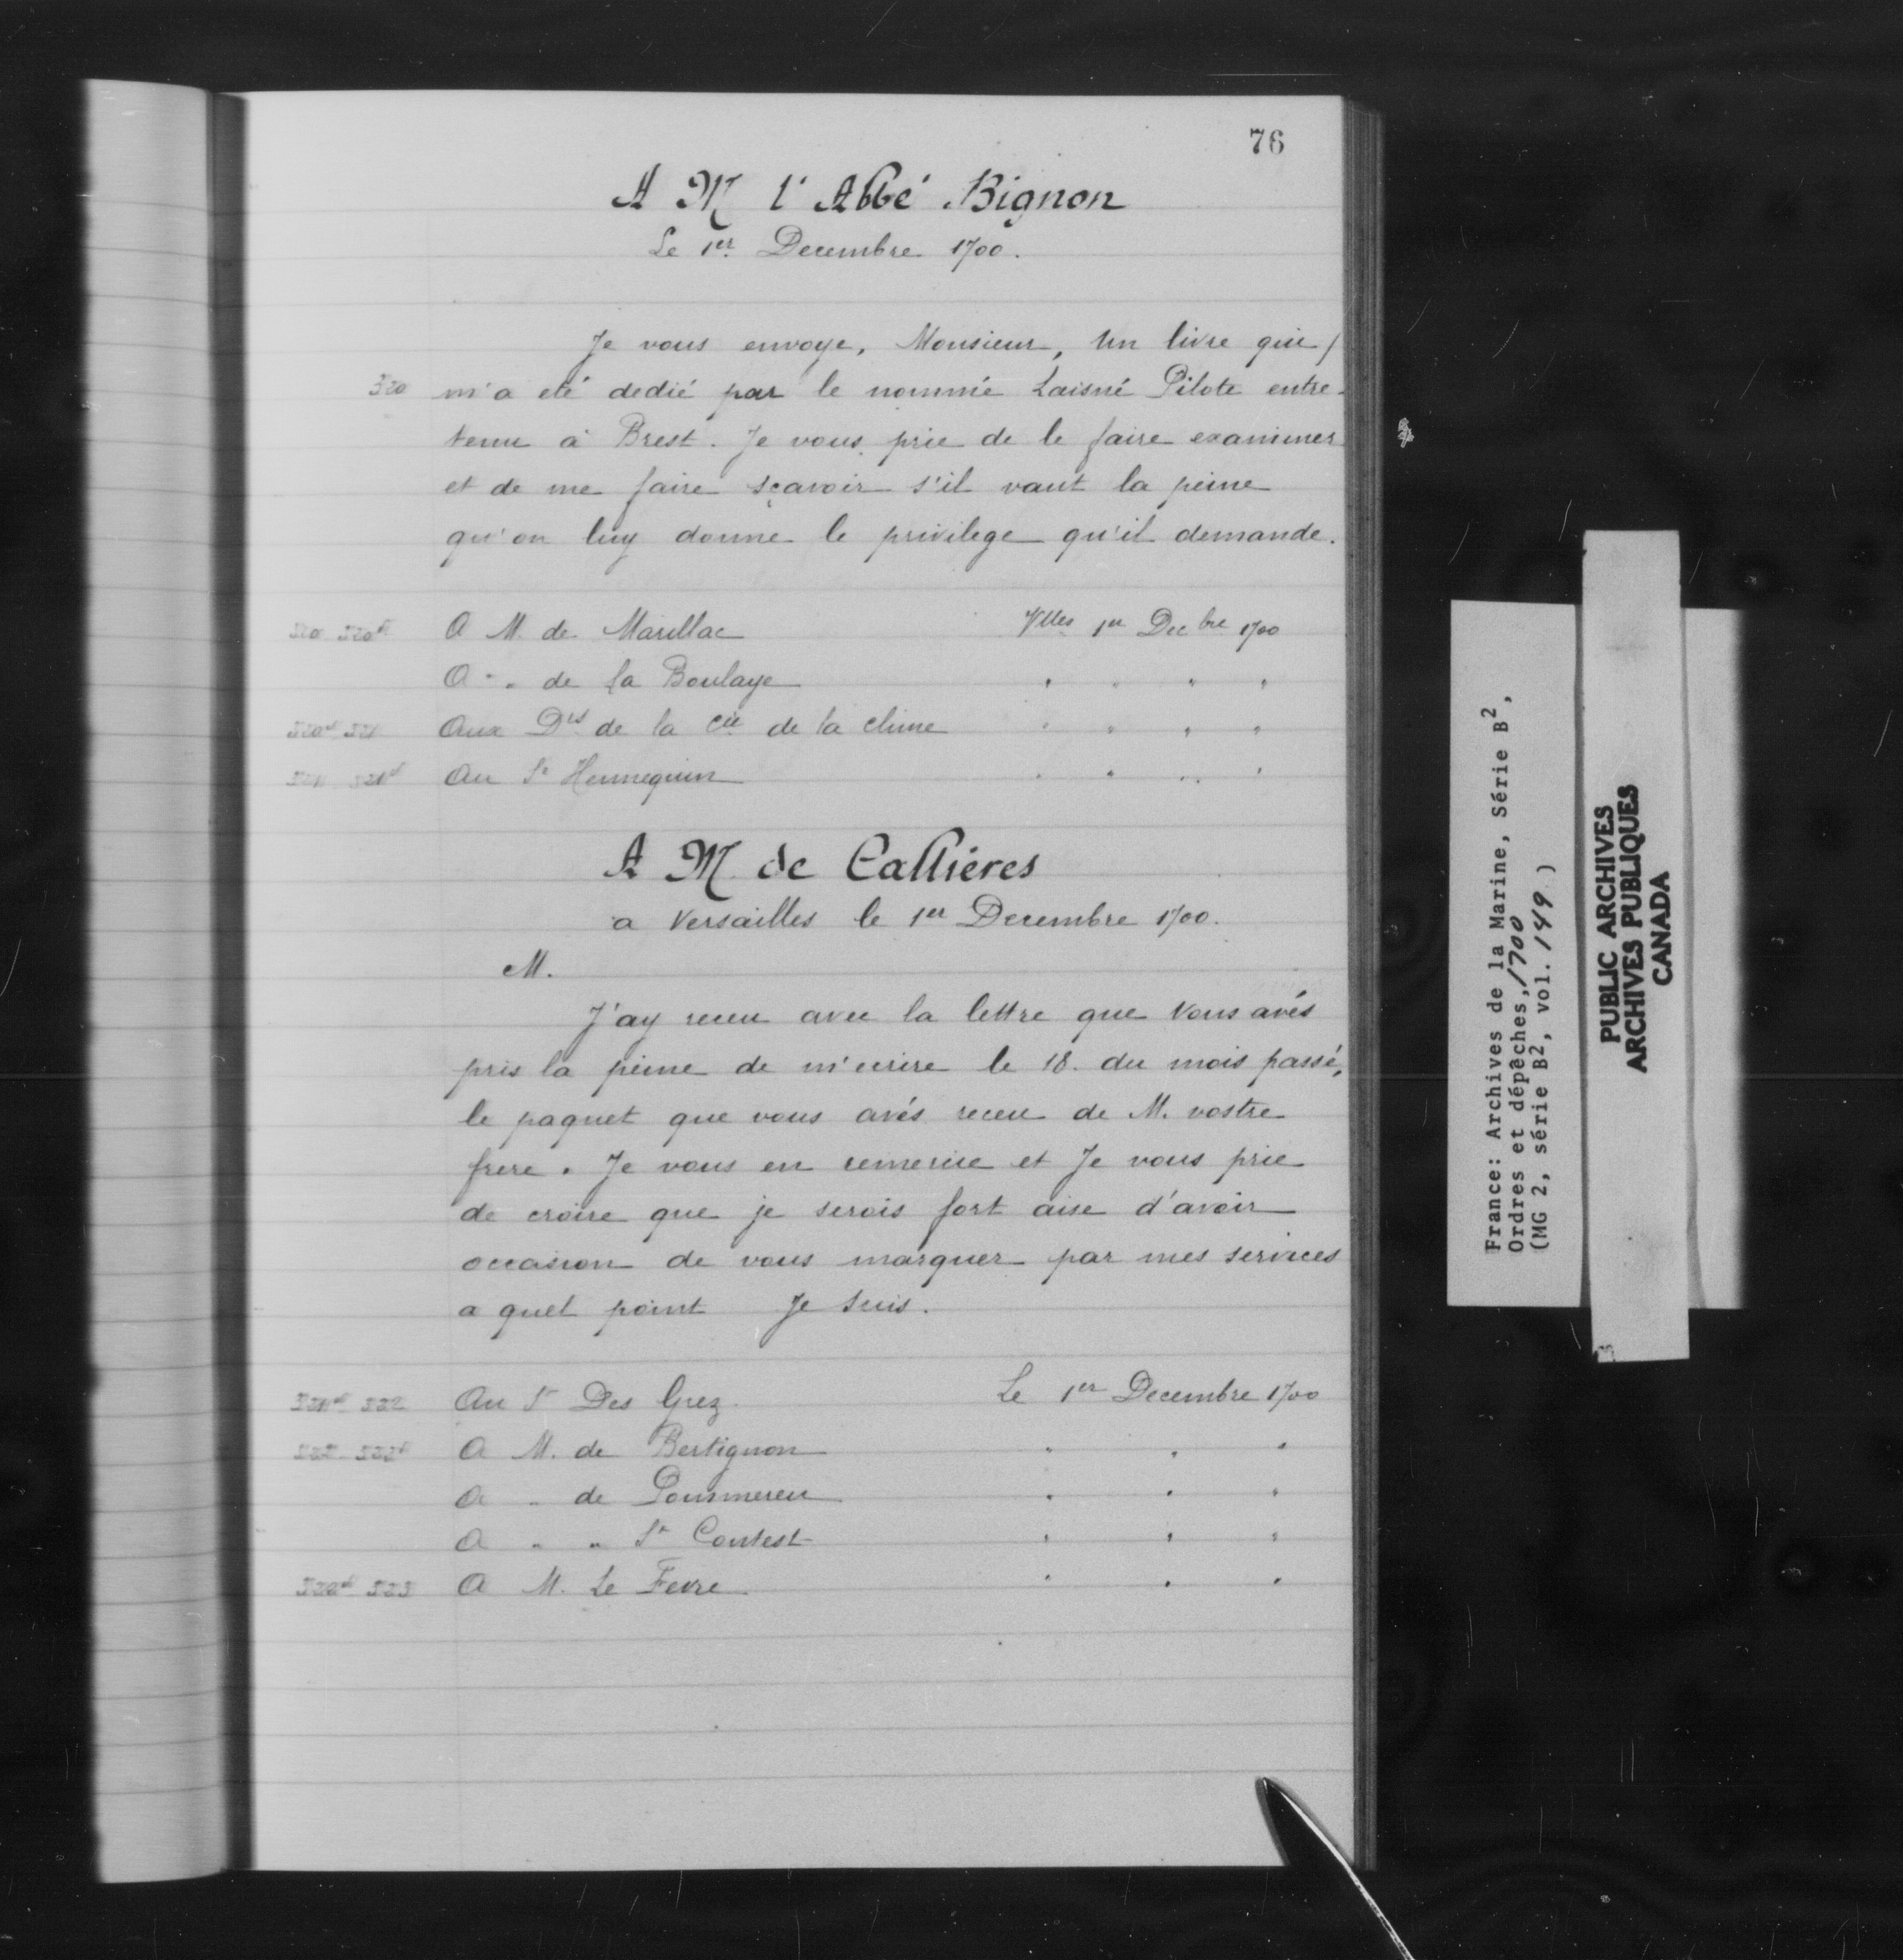 76
A M l'Abbé Bignon
Le 1er Decembre 1700.
Je vous envoye, Monsieur, un livre qui
520 m'a eté dedié par le nommé Laisné Pilote entre-
tenu à Brest. Je vous prie de le faire examiner
et de me faire sçavoir s'il vaut la peine
qu'on luy donne le privilege qu'il demande.
520 520vo A M. de Marillac Vlles 1er Decbre 1700
A " " de La Boulaye " " " "
520vo 521 Aux Drs de la Cie de la chine " " " "
521 521vo Au Sr Hennequin " " " "
A M. de Callières
a Versailles le 1er Decembre 1700.
M.
J'ay receu avec la lettre que vous avés
pris la peine de m'ecrire le 18. du mois passé,
le paquet que vous avés receu de M. vostre
frere. Je vous en remercie et Je vous prie
de croire que je serois fort aise d'avoir
occasion de vous marquer par mes services
a quel point Je suis.
521vo 522 Au Sr Des Grez. Le 1er Decembre 1700
522 522vo A M. de Bertignon " " "
A " de Pommereu " " "
A " " St Contest " " "
522vo 523 A M. Le Fevre " " "
France: Archives de la Marine, Série B2,
Ordres et dépêches, 1700
(MG 2, série B2, vol. 149)
PUBLIC ARCHIVES
ARCHIVES PUBLIQUES
CANADA